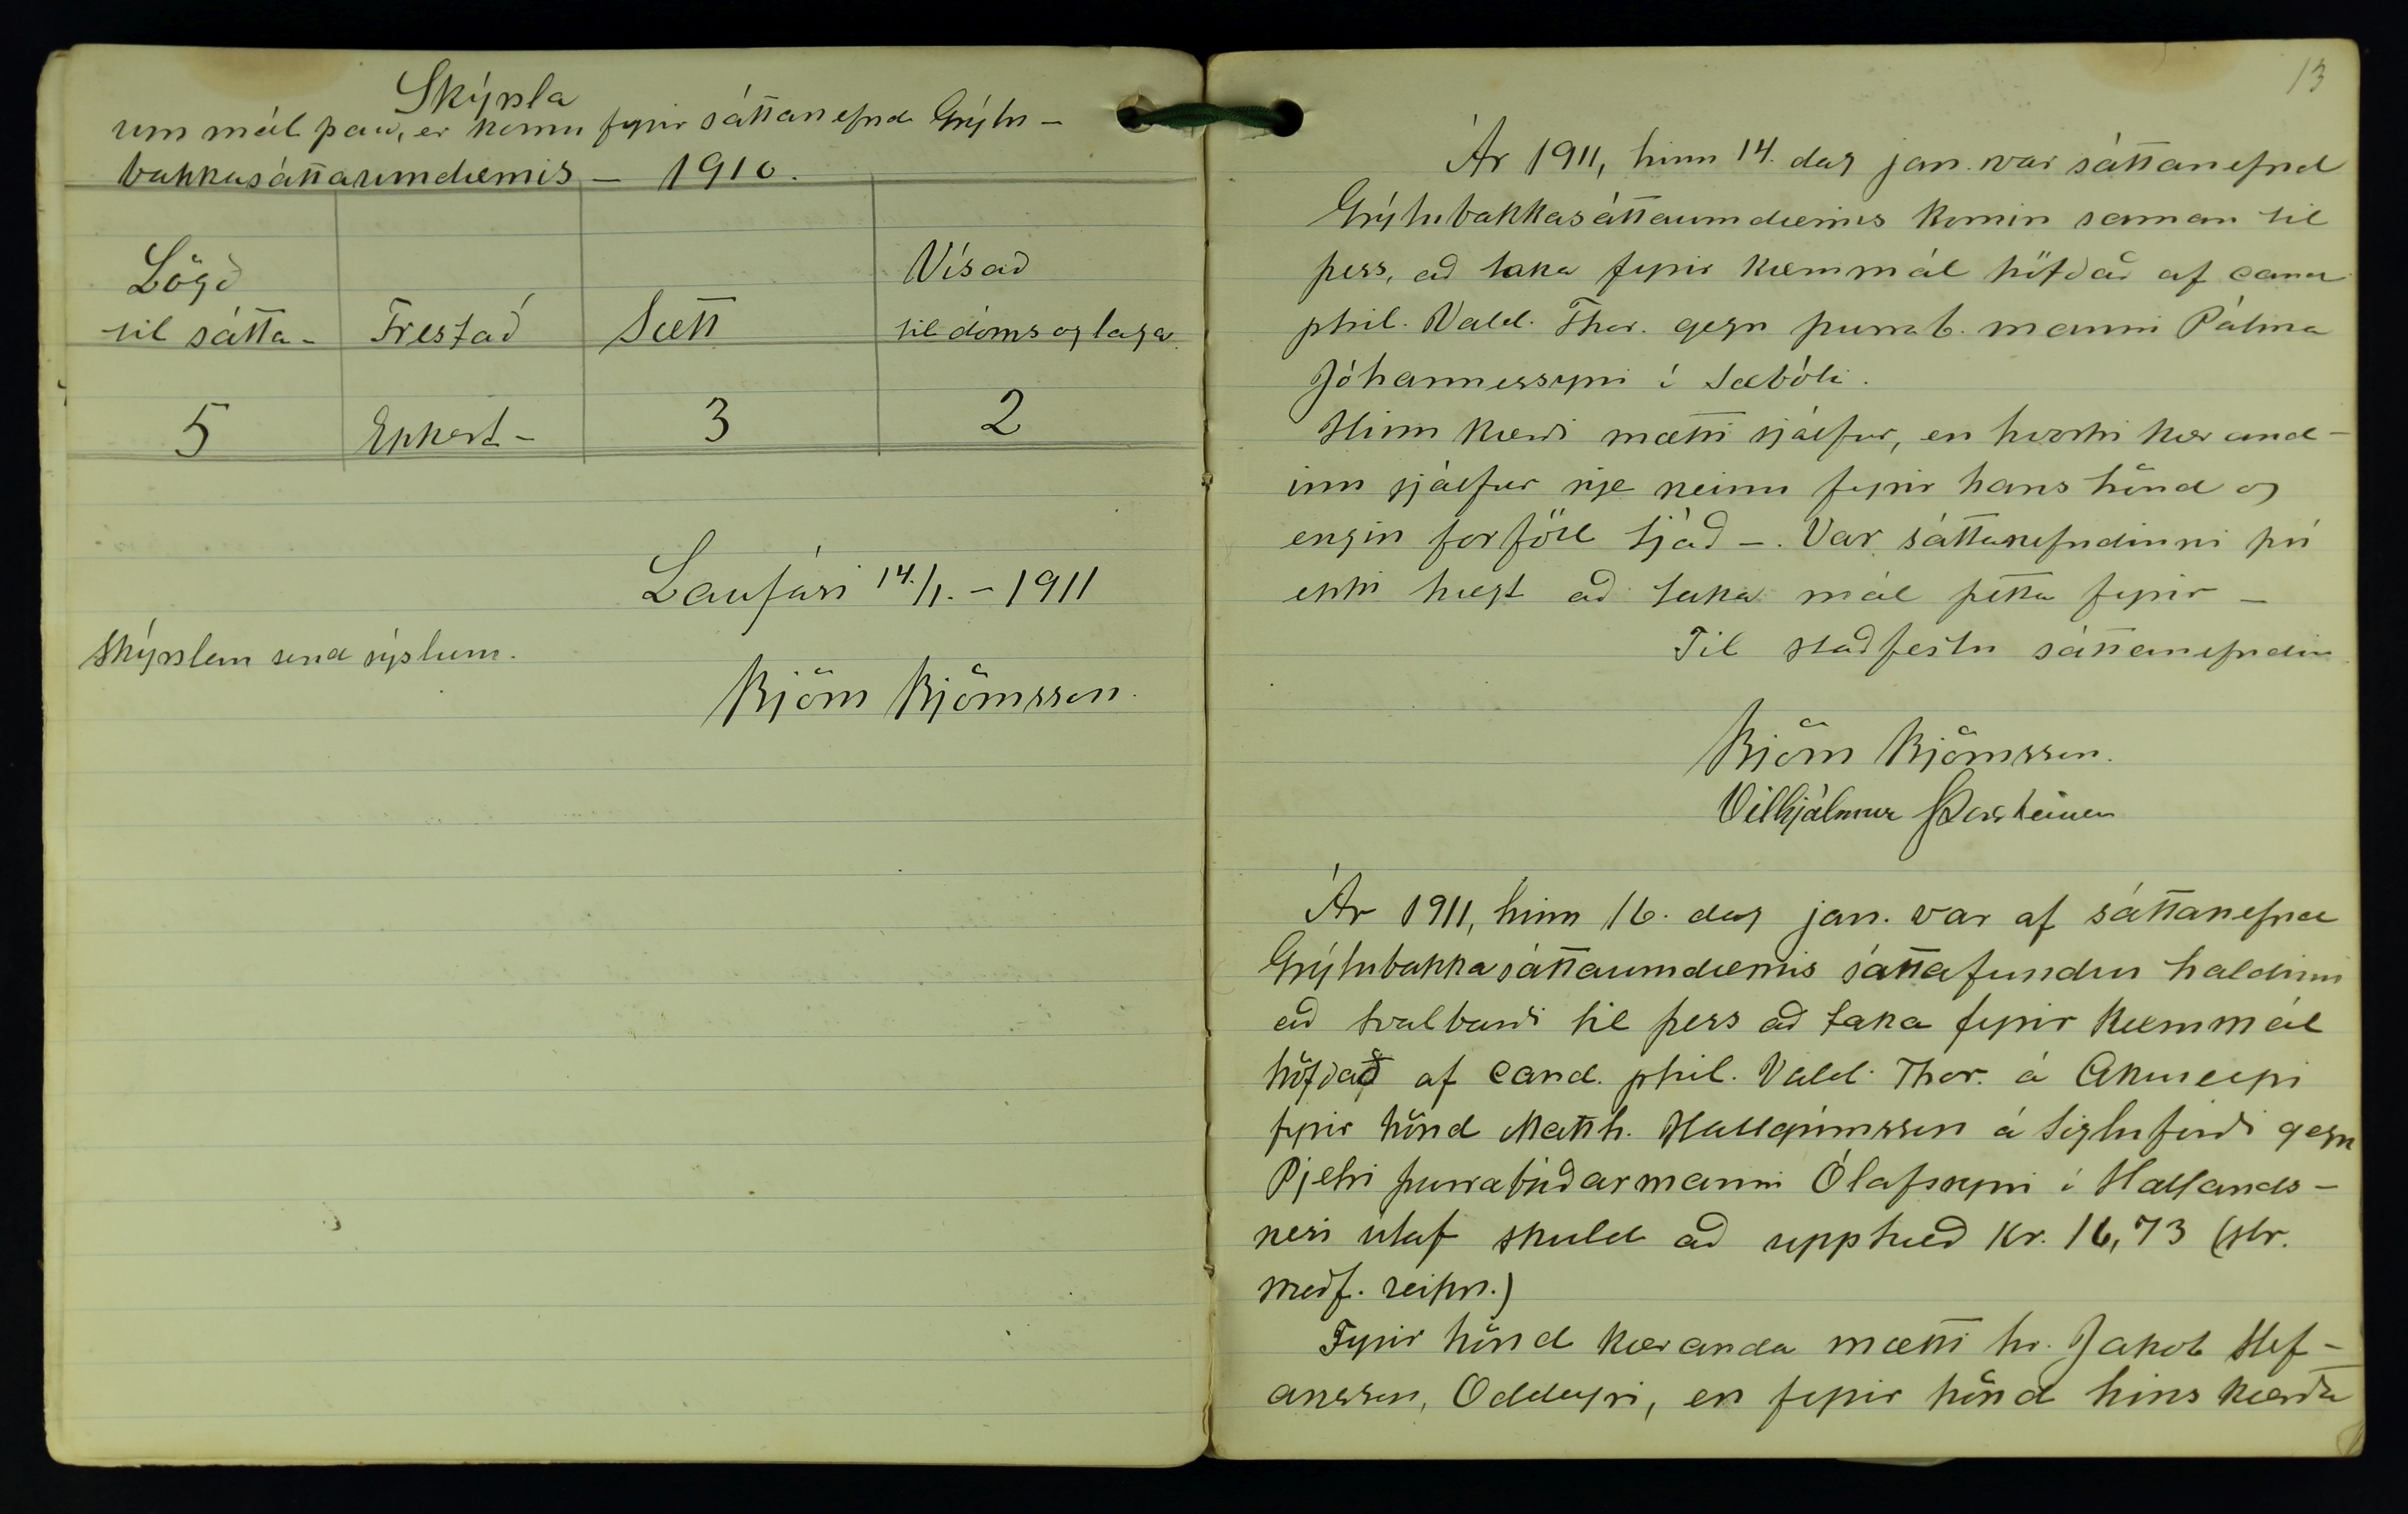 Skýrsla
um mál þau, er komu fyrir sáttanefnd Grýtu-
bakkasáttaumdæmis – 1910.
Lögð
til sátta-
Frestað
Sætt
Vísað
til dóms og laga
5
Ekkert -
3
2
Laufási 14./1. - 1911
Skýrslan send sýslum.
Björn Björnsson.
13
Ár 1911, hinn 14. dag jan. var sáttanefnd
Grýtubakkasáttaumdæmis komin saman til
þess, að taka fyrir kærumál höfðað af cand
phil. Vald. Thor. gegn þurrab. manni Pálma
Jóhannessyni í Sæbóli.
Hinn kærði mætti sjálfur, en hvorki kærand-
inn sjálfur nje neinn fyrir hans hönd og
engin forföll tjáð –. Var sáttanefndinni því
ekki hægt að taka mál þetta fyrir –
Til staðfestu sáttanefndin
Björn Björnsson.
Vilhjálmur Þorsteinsson
Ár 1911, hinn 16. dag jan. var af sáttanefnd
Grýtubakkasáttaumdæmis sáttafundur haldinn
að Svalbarði til þess að taka fyrir kærumál
höfðað af cand. phil. Vald. Thor. á Akureyri
fyrir hönd Matth. Hallgrímsson á Siglufirði gegn
Pjetri þurrabúðarmanni Ólafssyni í Hallands-
nesi útaf skuld að upphæð kr. 16,73 (sbr.
meðf. reikn.)
Fyrir hönd kæranda mætti hr. Jakob Stef-
ánsson, Oddeyri, en fyrir hönd hins kærða